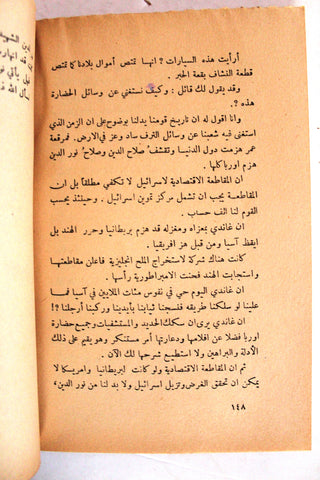 أرأيت هذه السيارات ؟ انها تمتص أموال بلادنا كما تمتص
قطعة النشاف بقعة الحبر .
وقد يقول لك قائل : وكيف نستغني عن وسائل الحضارة
هذه ؟.
وانا اقول له ان تاريخ قومنا يدلنا بوضوح على ان الزمن الذي
استغنى فيه شعبنا عن وسائل الترف ساد وعز في الارض. فمرقعة
عمر هزمت دول الدنيا وتقشف صلاح الدين وصلاح نور الدين
هزم اورباكلها .
ان المقاطعة الاقتصادية لاسرائيل لا تكفي مطلقاً بل ان
المقاطعة يجب ان تشمل مركز تموين اسرائيل . وحينئذ يحسب
القوم لنا الف حساب .
ان غاندي بمعزاه ومغزله قد هزم بريطانيا وحرر الهند بل
ايقظ آسيا ومن قبل هز افريقيا .
كانت هناك شركة لاستخراج الملح انجليزية فاعلن مقاطعتها
واستجابت الهند فحنت الامبراطورية رأسها .
ان غاندي اليوم حي في نفوس مئات الملايين في آسيا فما
علينا لو سلكنا طريقه فنسجنا ثيابنا بأيدينا وركبنا أرجلنا ؟!
ان غاندي يرى ان سكك الحديد والمستشفيات وجميع حضارة
اوربا فضلا عن افلامها ودعارتها أمر مستنكر وهو يقيم على ذلك
الأدلة والبراهين ولا استطيع شرحها لك الآن .
ثم ان المقاطعة الاقتصادية ولو كانت لبريطانيا وامريكا لا
يمكن ان تحقق الغرض وتزيل اسرائيل ولا بد لنا من نور الدين،
١٤٨